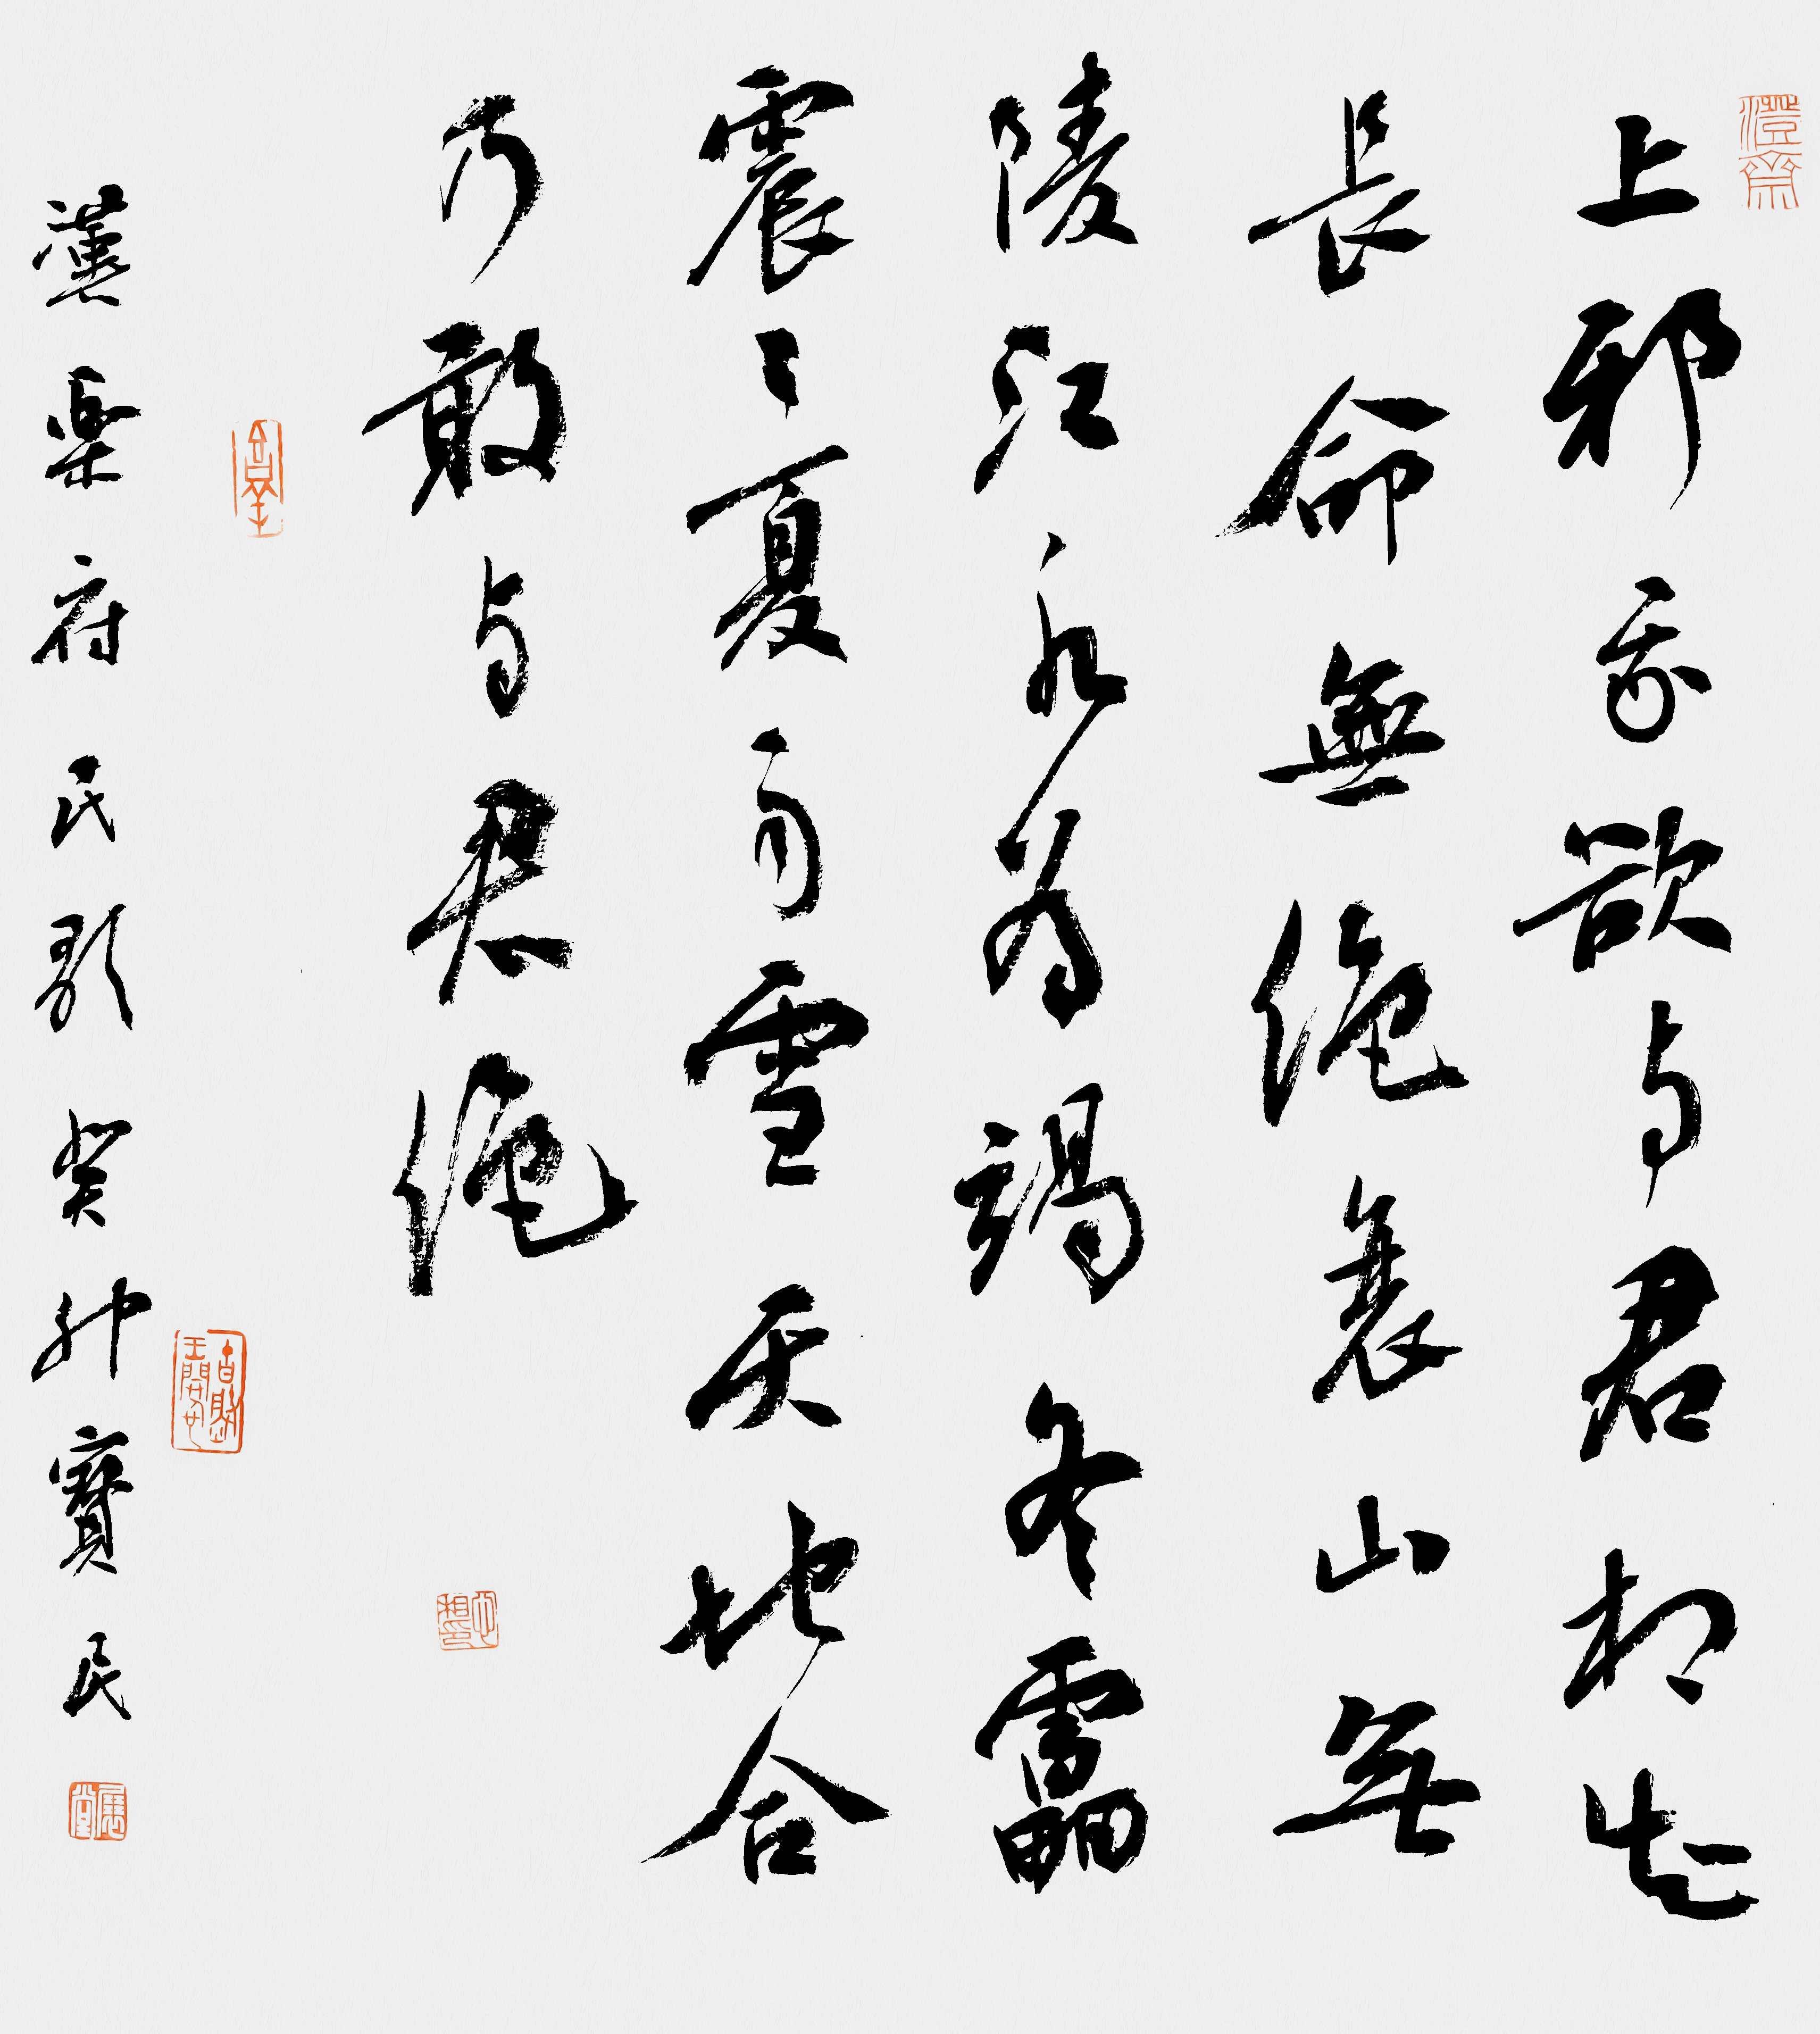 上邪我欲与君相知
長命無絶衰山無
陵江水為竭冬靁
震〻夏雨雪天地合
乃敢与君絶
漢樂府民歌癸卯寶民
澄齋